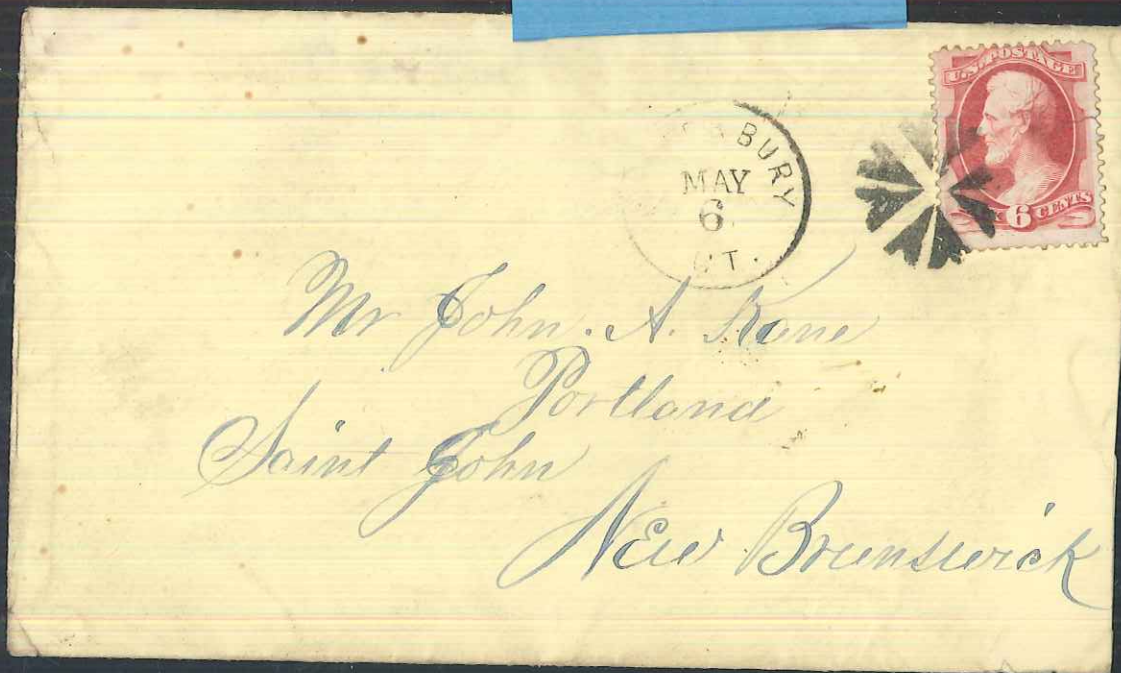 U.S. POSTAGE
BURY
MAY
6
CT.
6 CENTS
Mr John. A. Kane
Portland
Saint John
New Brunswick